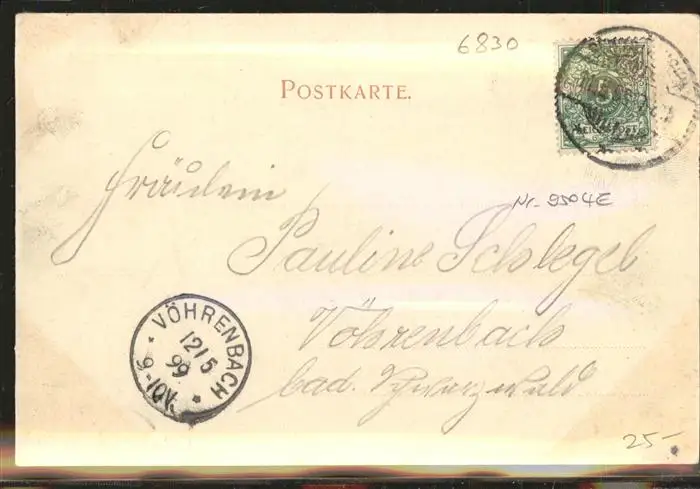 6830
POSTKARTE.
REICHSPOST
Fräulein
Nr. 9504E
Pauline Schlegel
Vöhrenbach
bad. Schwarzwald
VÖHRENBACH
12/5
99
9-10V.
25-